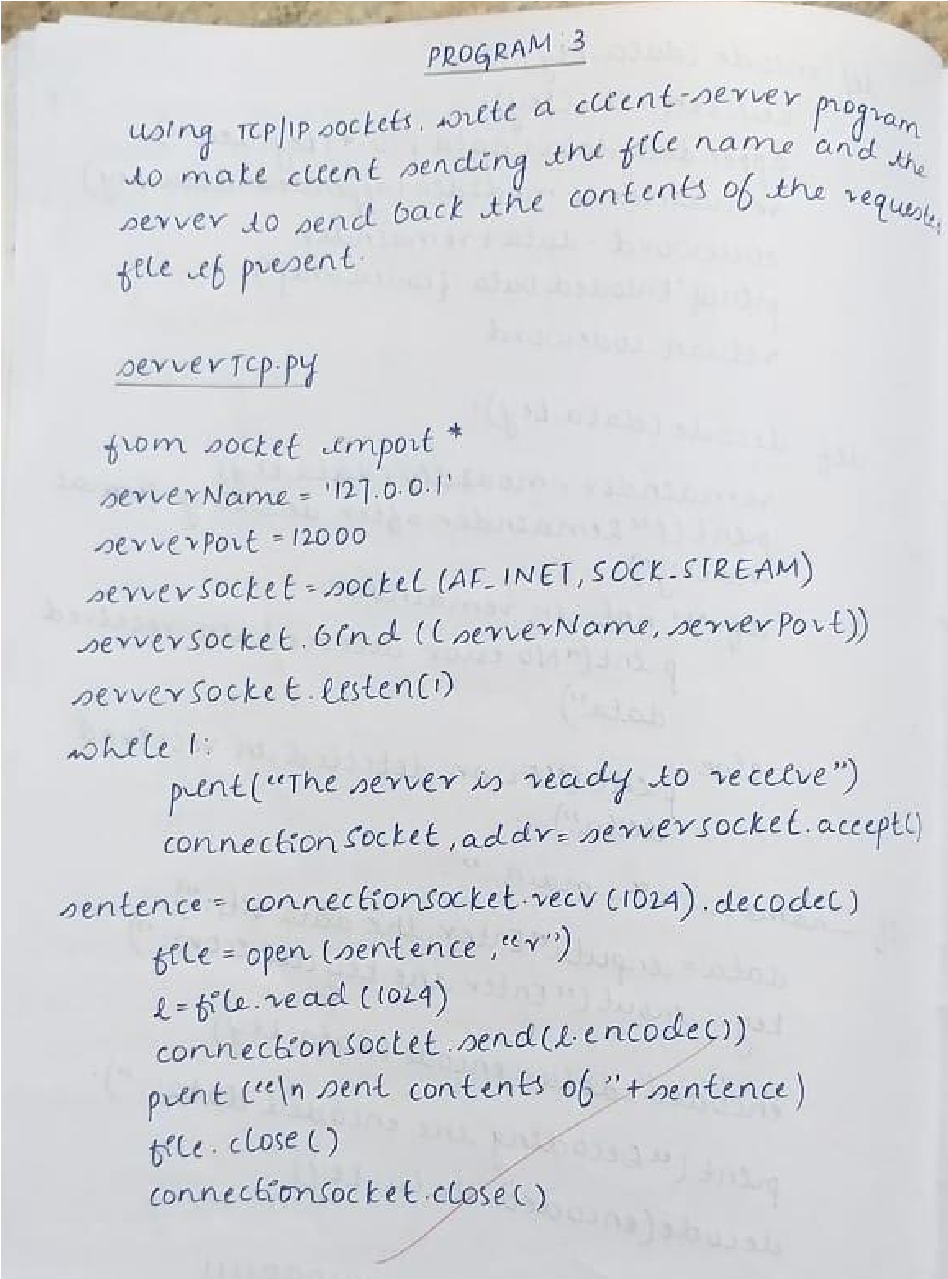 PROGRAM: 3
using TCP/IP sockets, write a client-server program
to make client sending the file name and the
server to send back the contents of the requested
file if present.
serverTCP.py
from socket import *
serverName = '127.0.0.1'
serverPort = 12000
serversocket = socket (AF_INET, SOCK_STREAM)
serversocket.bind ((serverName, serverPort))
serversocket.listen(1)
while 1:
print("The server is ready to receive")
connectionSocket, addr = serversocket.accept()
sentence = connectionsocket.recv (1024).decode()
file = open (sentence, "r")
l = file.read (1024)
connectionsocket.send(l.encode())
print ("\n sent contents of " + sentence)
file.close()
connectionsocket.close()